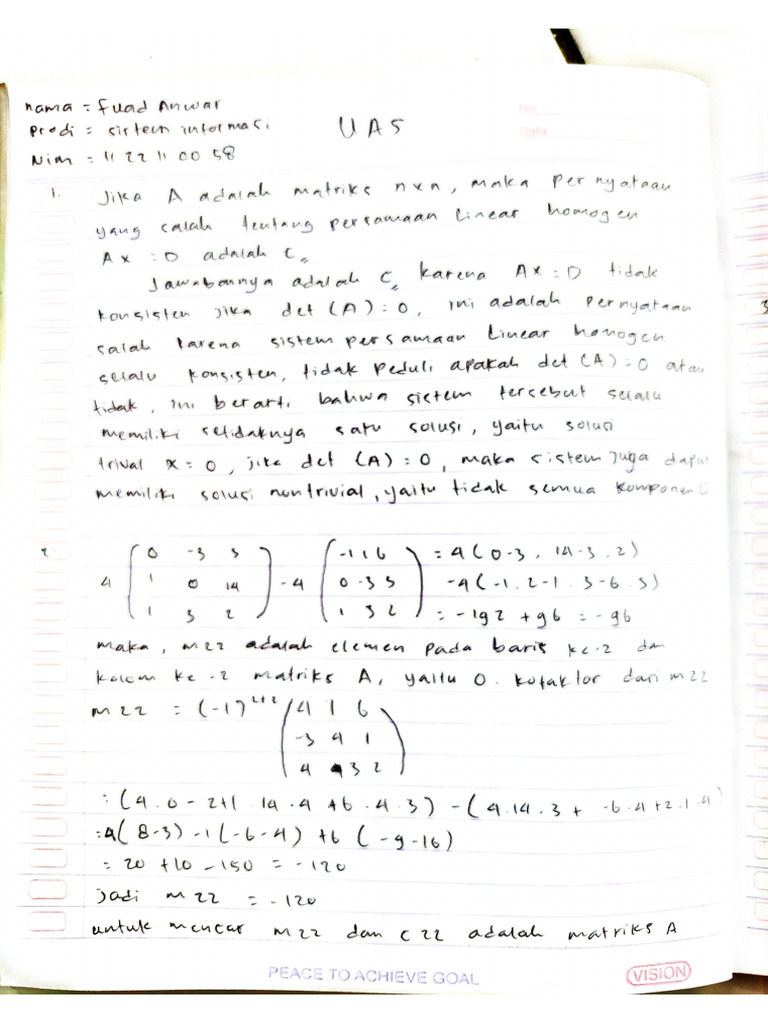 nama = Fuad Anwar
Prodi = sistem informasi
UAS
Nim = 11 22 11 00 58
1. Jika A adalah matriks nxn, maka pernyataan
yang salah tentang persamaan linear homogen
Ax = 0 adalah C,
Jawabannya adalah C, karena Ax = 0 tidak
konsisten jika det (A) = 0, ini adalah pernyataan
salah karena sistem persamaan linear homogen
selalu konsisten, tidak peduli apakah det (A) = 0 atau
tidak, ini berarti bahwa sistem tersebut selalu
memiliki setidaknya satu solusi, yaitu solusi
trival x = 0, jika det (A) = 0, maka sistem juga dapat
memiliki solusi nontrivial, yaitu tidak semua komponen
2. 0 -3 3 -1 1 6 = 4 (0-3, 14-3, 2)
4 1 0 14 -4 0 -3 3 -4 (-1. 2-1. 3-6. 3)
1 3 2 1 3 2 = -192 + 96 = -96
maka, m22 adalah elemen pada baris ke-2 dan
kolom ke-2 matriks A, yaitu 0. kofaktor dari m22
m22 = (-1)²⁺² 4 1 6
-3 4 1
4 3 2
= (4.0 - 2+1 . 14 . 4 + 6 . 4 . 3) - (4.14.3 + -6.4+2.1.4)
= 4(8-3) -1(-6-4) +6 (-9-16)
= 20 +10 -150 = -120
jadi m22 = -120
untuk mencar m22 dan c22 adalah matriks A
PEACE TO ACHIEVE GOAL
VISION